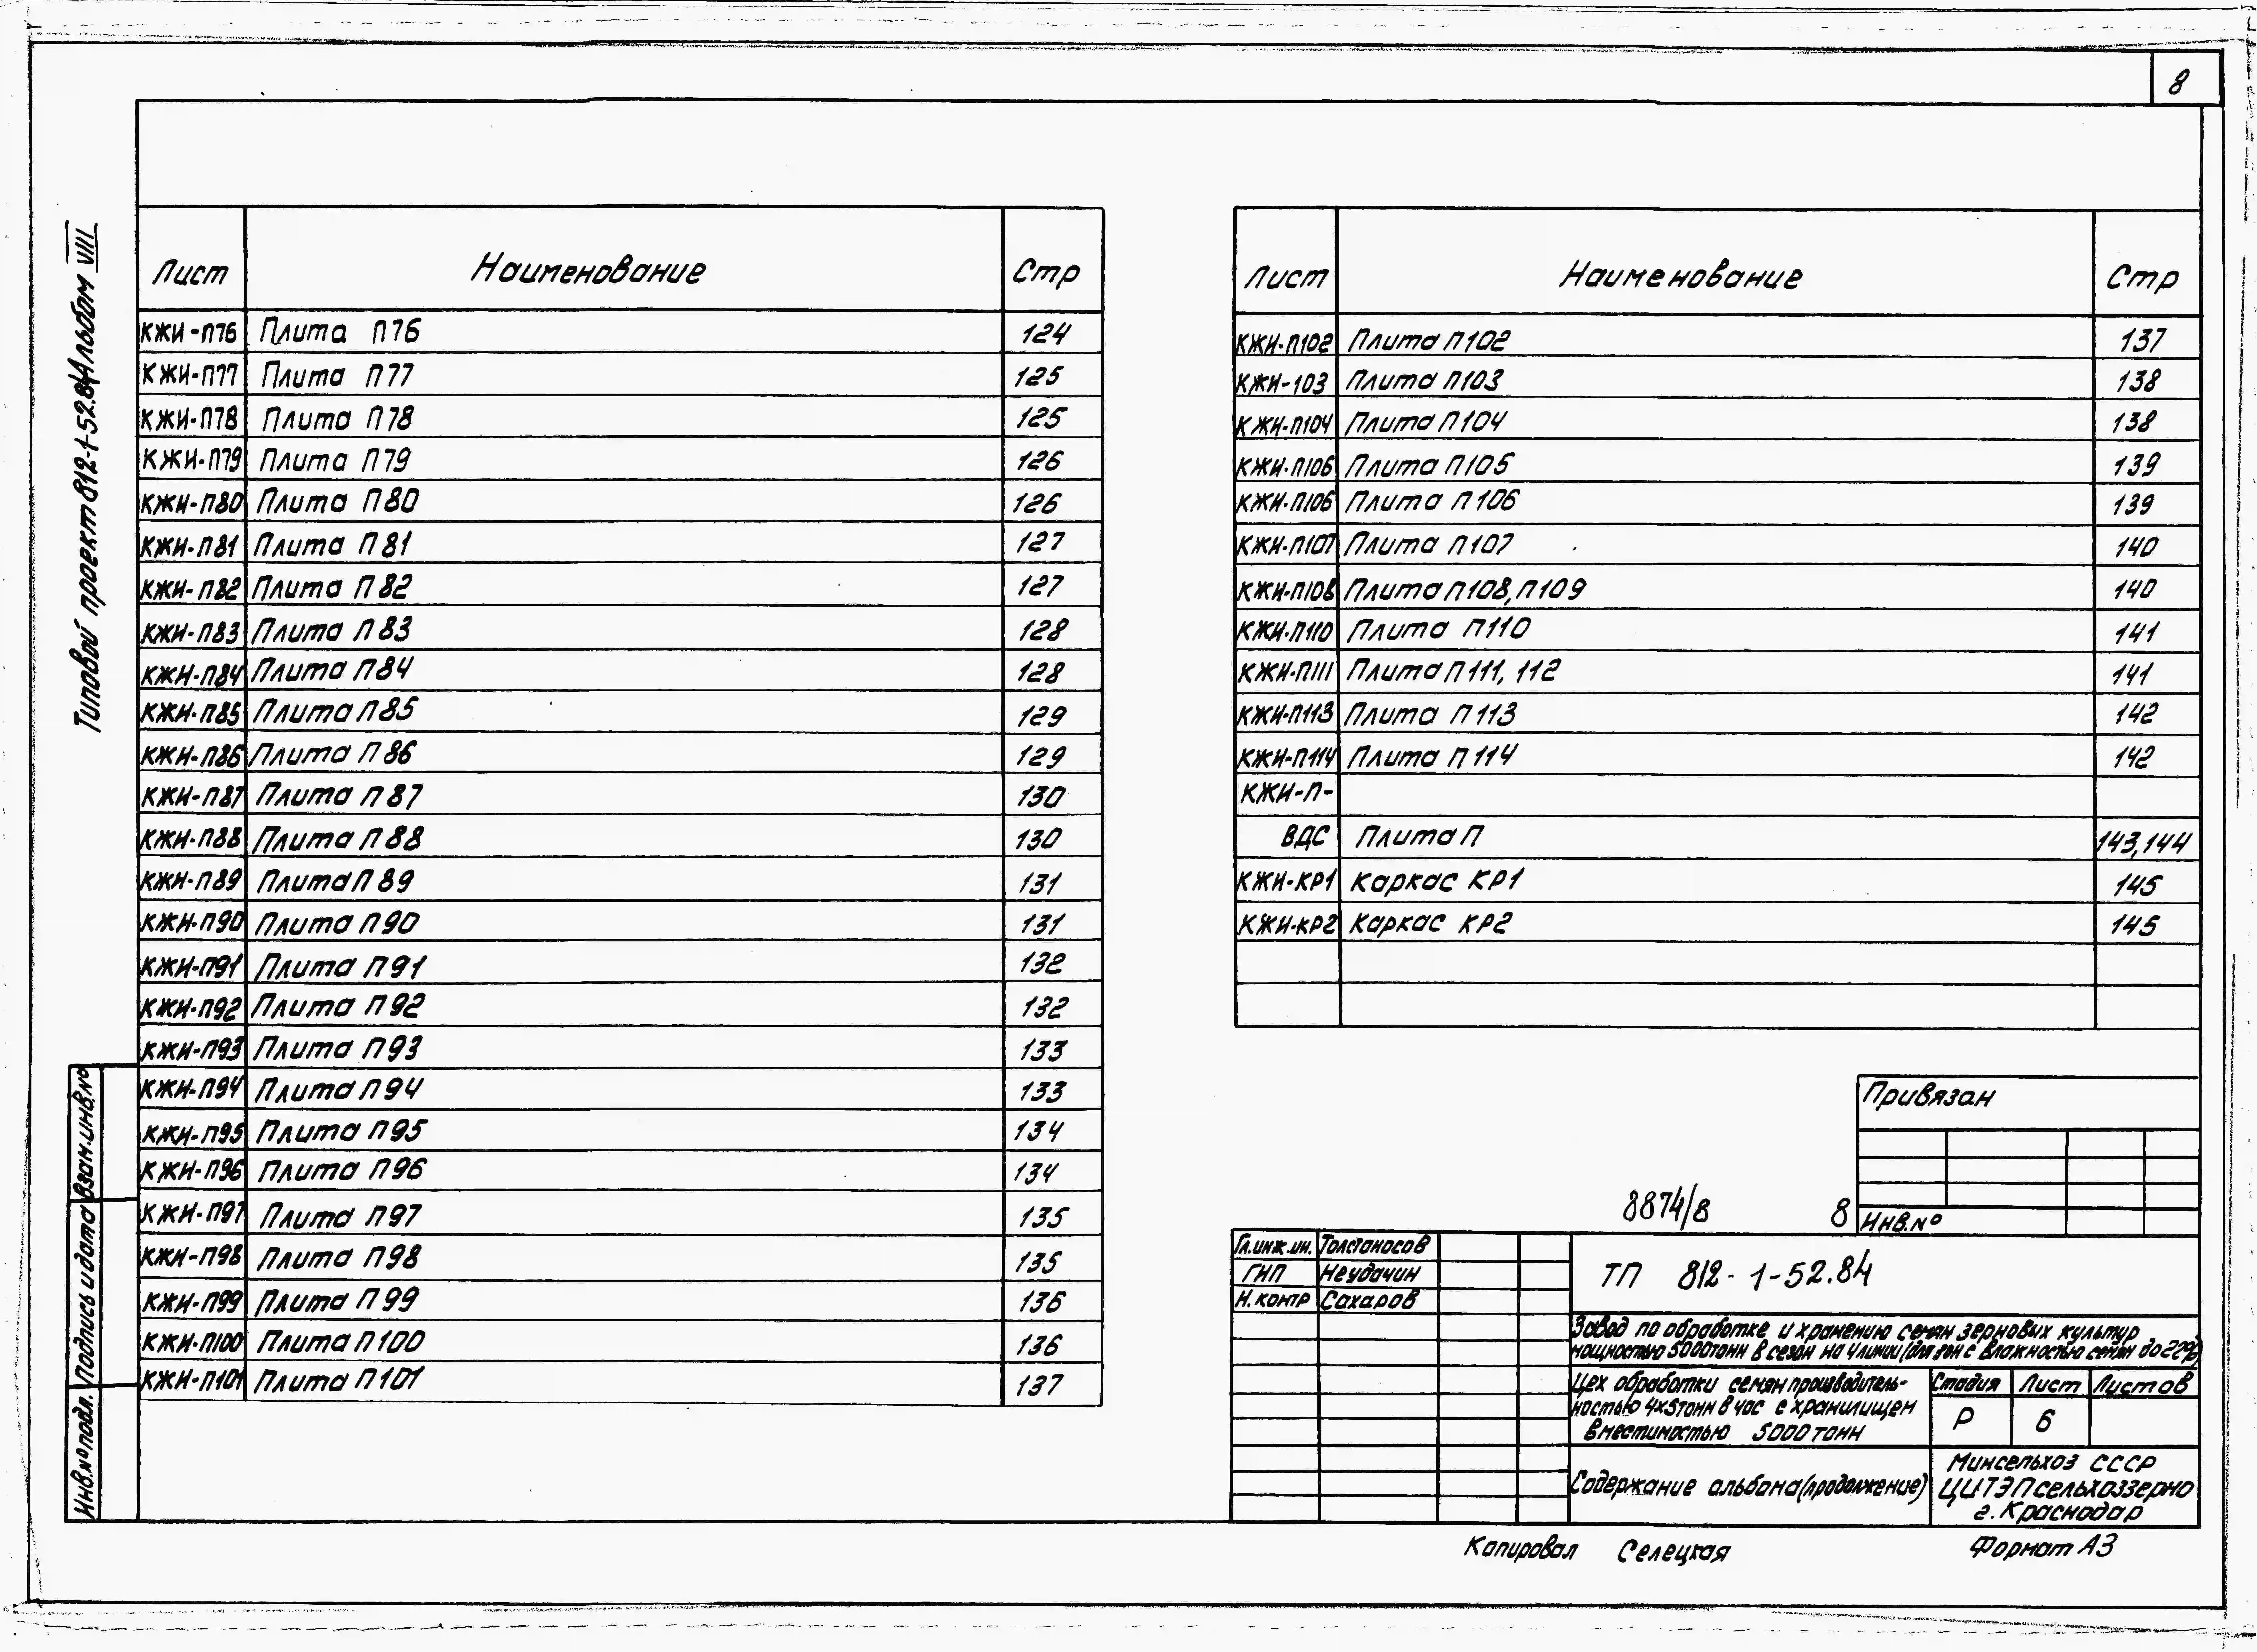 8
Типовой проект 812-1-52.84 Альбом VIII
Лист Наименование Стр
КЖИ-П76 Плита П76 124
КЖИ-П77 Плита П77 125
КЖИ-П78 Плита П78 125
КЖИ-П79 Плита П79 126
КЖИ-П80 Плита П80 126
КЖИ-П81 Плита П81 127
КЖИ-П82 Плита П82 127
КЖИ-П83 Плита П83 128
КЖИ-П84 Плита П84 128
КЖИ-П85 Плита П85 129
КЖИ-П86 Плита П86 129
КЖИ-П87 Плита П87 130
КЖИ-П88 Плита П88 130
КЖИ-П89 Плита П89 131
КЖИ-П90 Плита П90 131
КЖИ-П91 Плита П91 132
КЖИ-П92 Плита П92 132
КЖИ-П93 Плита П93 133
КЖИ-П94 Плита П94 133
КЖИ-П95 Плита П95 134
КЖИ-П96 Плита П96 134
КЖИ-П97 Плита П97 135
КЖИ-П98 Плита П98 135
КЖИ-П99 Плита П99 136
КЖИ-П100 Плита П100 136
КЖИ-П101 Плита П101 137
Лист Наименование Стр
КЖИ-П102 Плита П102 137
КЖИ-103 Плита П103 138
КЖИ-П104 Плита П104 138
КЖИ-П106 Плита П105 139
КЖИ-П106 Плита П106 139
КЖИ-П107 Плита П107 140
КЖИ-П108 Плита П108, П109 140
КЖИ-П110 Плита П110 141
КЖИ-П111 Плита П111, 112 141
КЖИ-П113 Плита П113 142
КЖИ-П114 Плита П114 142
КЖИ-П-
ВДС Плита П 143,144
КЖИ-КР1 Каркас КР1 145
КЖИ-КР2 Каркас КР2 145
Взам.инв.№
Подпись и дата
Инв.№ подл.
Привязан
Инв.№
8874/8 8
Гл.инж.ин. Толстоносов
ГИП Неудачин
Н.контр Сахаров
ТП 812-1-52.84
Завод по обработке и хранению семян зерновых культур
мощностью 5000тонн в сезон на 4 линии (для зон с влажностью семян до 22%)
Цех обработки семян производитель-
ностью 4х5тонн в час с хранилищем
вместимостью 5000тонн
Стадия Лист Листов
Р 6
Содержание альбома (продолжение)
Минсельхоз СССР
ЦИТЭПсельхоззерно
г.Краснодар
Копировал Селецкая Формат А3